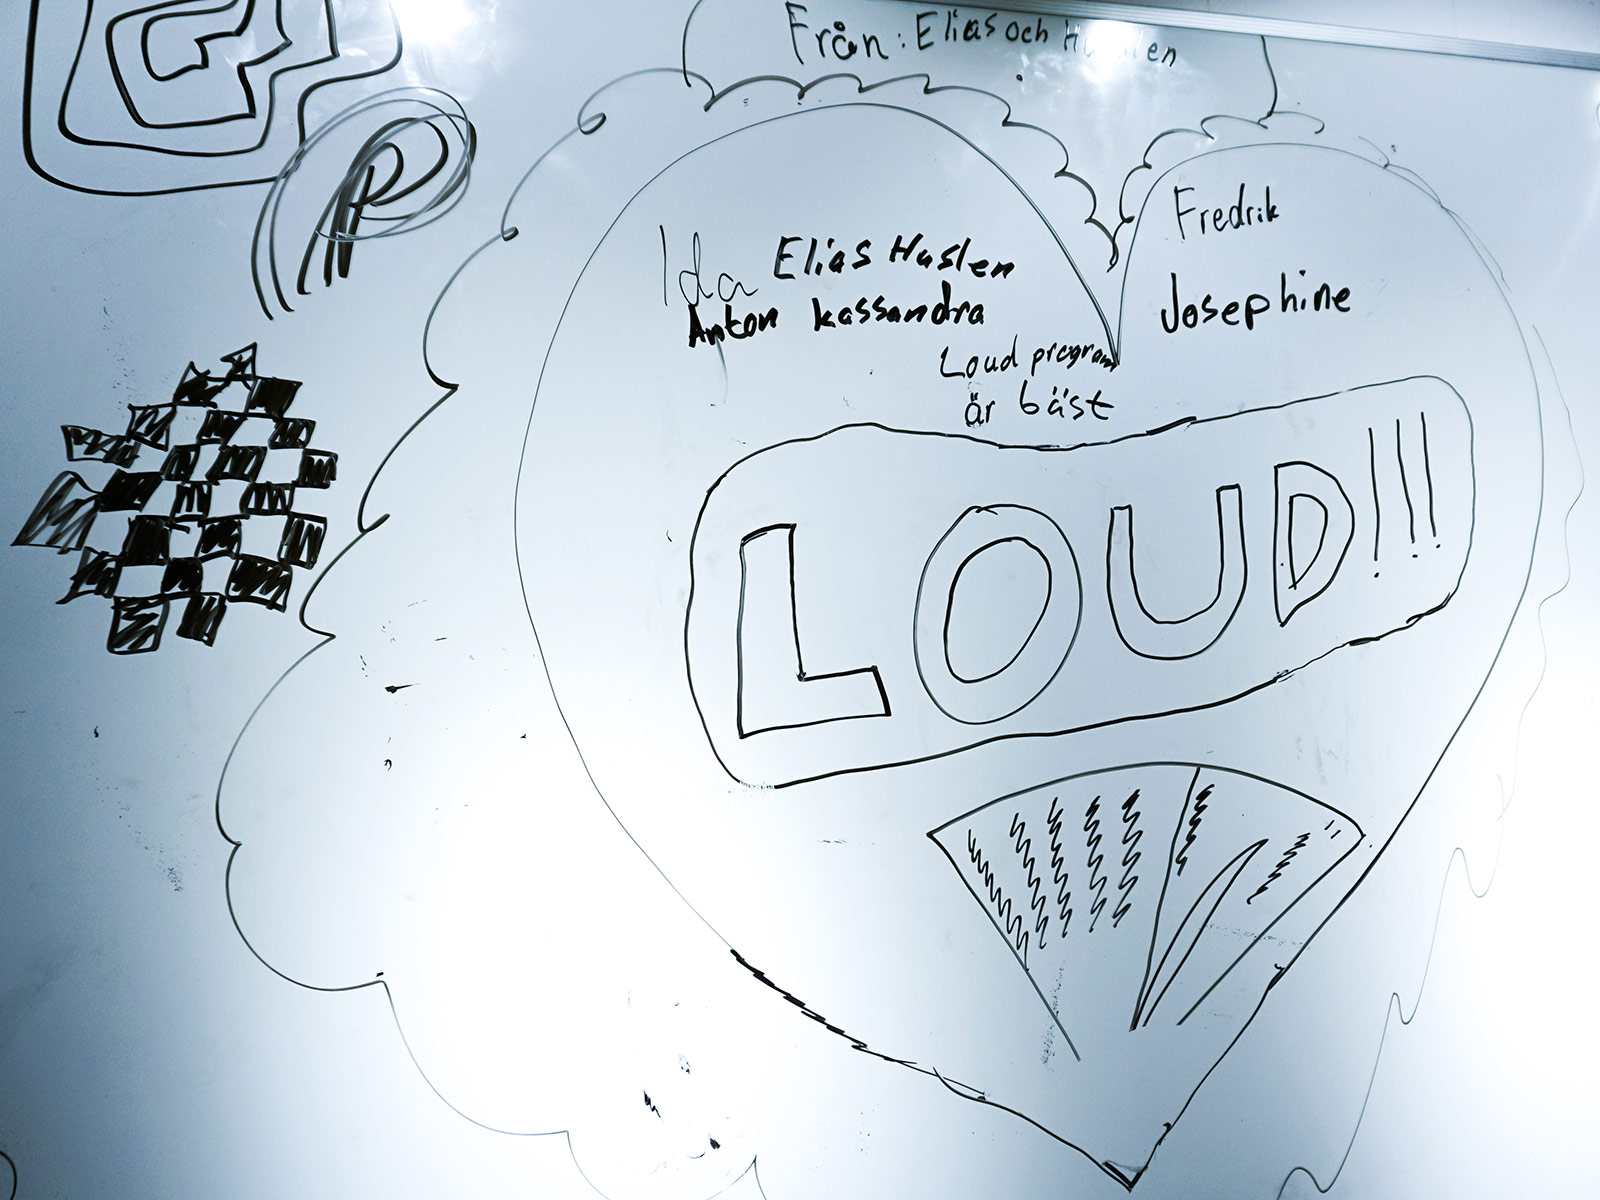 Från: Elias och Huslen
Fredrik
Ida Elias Huslen
Anton kassandra
Josephine
Loud program
är bäst
LOUD!!!